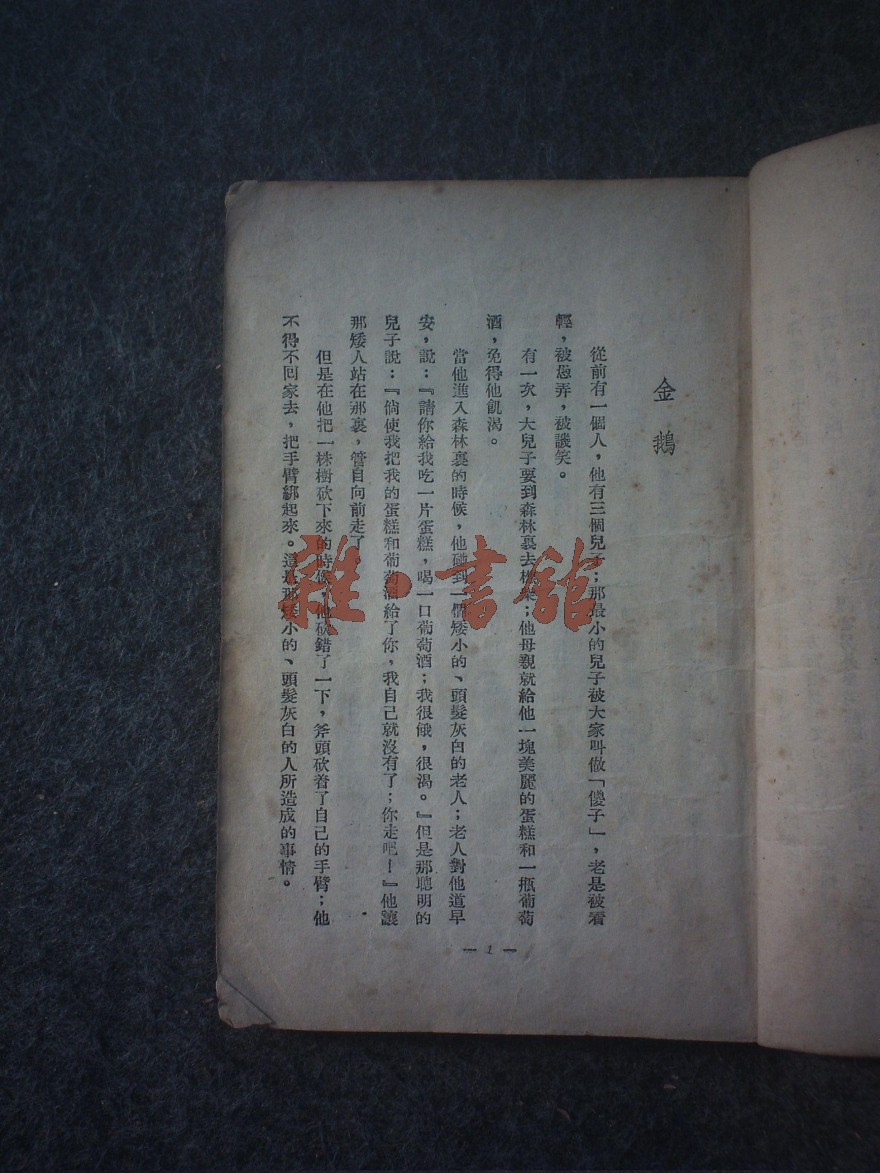 金鵝
從前有一個人，他有三個兒子；那最小的兒子被大家叫做「傻子」，老是被看
輕，被愚弄，被譏笑。
有一次，大兒子要到森林裏去樵柴；他母親就給他一塊美麗的蛋糕和一瓶葡萄
酒，免得他飢渴。
當他進入森林裏的時候，他碰到一個矮小的、頭髮灰白的老人；老人對他道早
安，說：『請你給我吃一片蛋糕，喝一口葡萄酒；我很餓，很渴。』但是那聰明的
兒子說：『倘使我把我的蛋糕和葡萄酒給了你，我自己就沒有了；你走吧！』他讓
那矮人站在那裏，管自向前走了
但是在他把一株樹砍下來的時候，他砍錯了一下，斧頭砍着了自己的手臂；他
不得不回家去，把手臂綁起來。這是那矮小的、頭髮灰白的人所造成的事情。
— 1 —
雜·書館